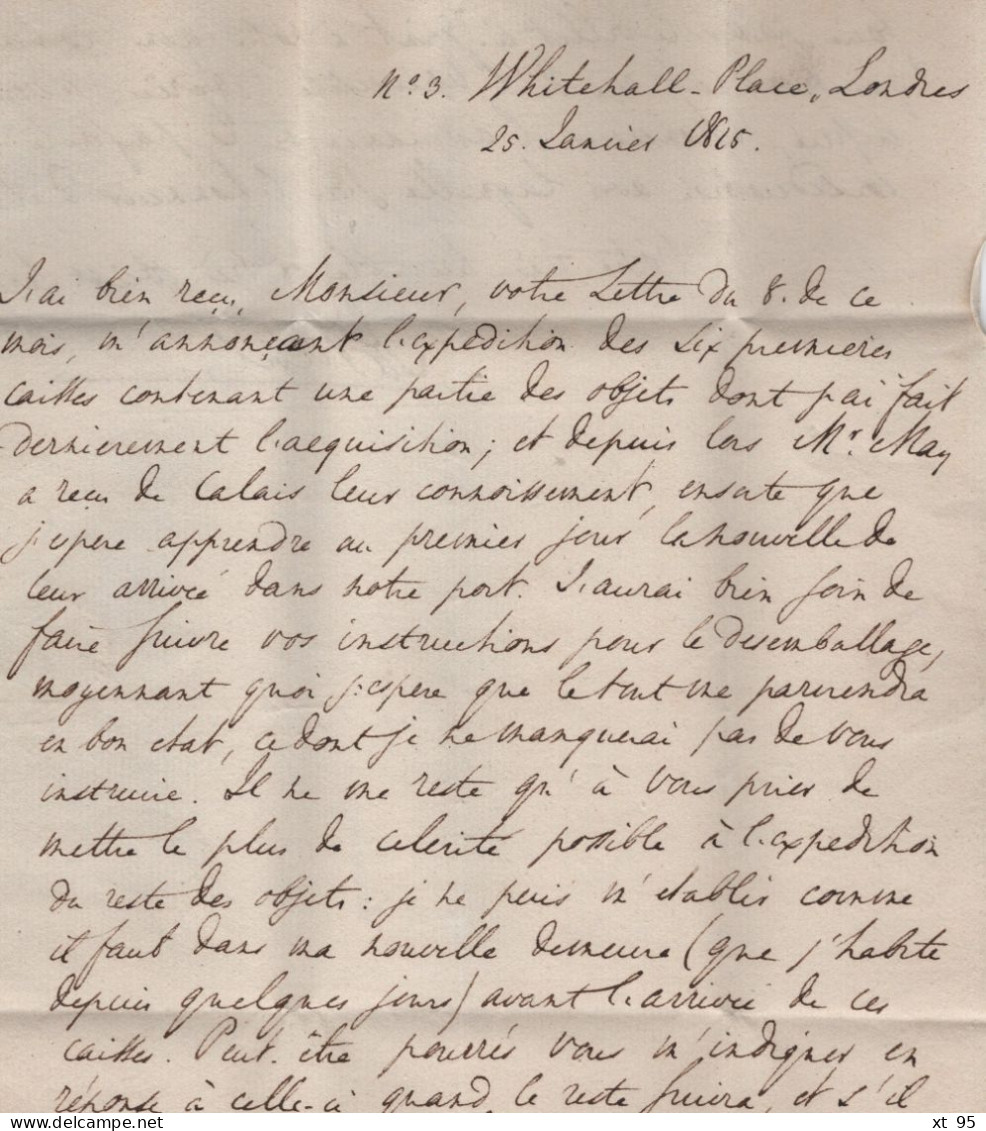 No. 3. Whitehall-Place, Londres
25. Janvier 1815.
J'ai bien reçu, Monsieur, votre Lettre du 8. de ce
mois, m'annonçant l'expedition des Six premieres
caisses contenant une partie des objets dont j'ai fait
dernierement l'acquisition; et depuis lors Mr. May
a reçu de Calais leur connoissement, ensorte que
j'espere apprendre au premier jour la nouvelle de
leur arrivée dans notre port. J'aurai bien soin de
faire suivre vos instructions pour le desemballage,
moyennant quoi j'espere que le tout me parviendra
en bon etat, ce dont je ne manquerai pas de vous
instruire. Il ne me reste qu'à vous prier de
mettre le plus de celerité possible à l'expedition
du reste des objets: je ne puis m'etablir comme
il faut dans ma nouvelle demeure (que j'habite
depuis quelques jours) avant l'arrivée de ces
caisses. Peut-être pourrés vous m'indiquer en
réponse à celle-ci quand le reste suivra, et s'il
xt 95